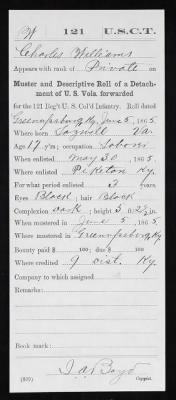 W 121 U.S.C.T.
Charles Williams
Appears with rank of Private on
Muster and Descriptive Roll of a Detach-
ment of U. S. Vols. forwarded
for the 121 Reg't U. S. Col'd Infantry. Roll dated
Greenupsburg, Ky, June 5, 1865.
Where born Tazwell Va.
Age 17 y'rs; occupation Labor
When enlisted May 30, 1865.
Where enlisted Piketon Ky.
For what period enlisted 3 years.
Eyes Black; hair Black
Complexion dark; height 5 ft. in.
When mustered in June 5, 1865.
Where mustered in Greenupsburg, Ky.
Bounty paid $ 100; due $ 100
Where credited 9 Dist. Ky.
Company to which assigned
Remarks:
Book mark:
Boyd
(339) Copyist.